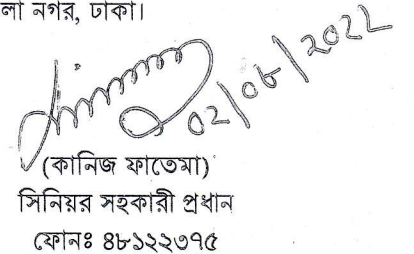 লা নগর, ঢাকা।
02/08/2022
(কানিজ ফাতেমা)
সিনিয়র সহকারী প্রধান
ফোনঃ ৪৮১২২৩৭৫